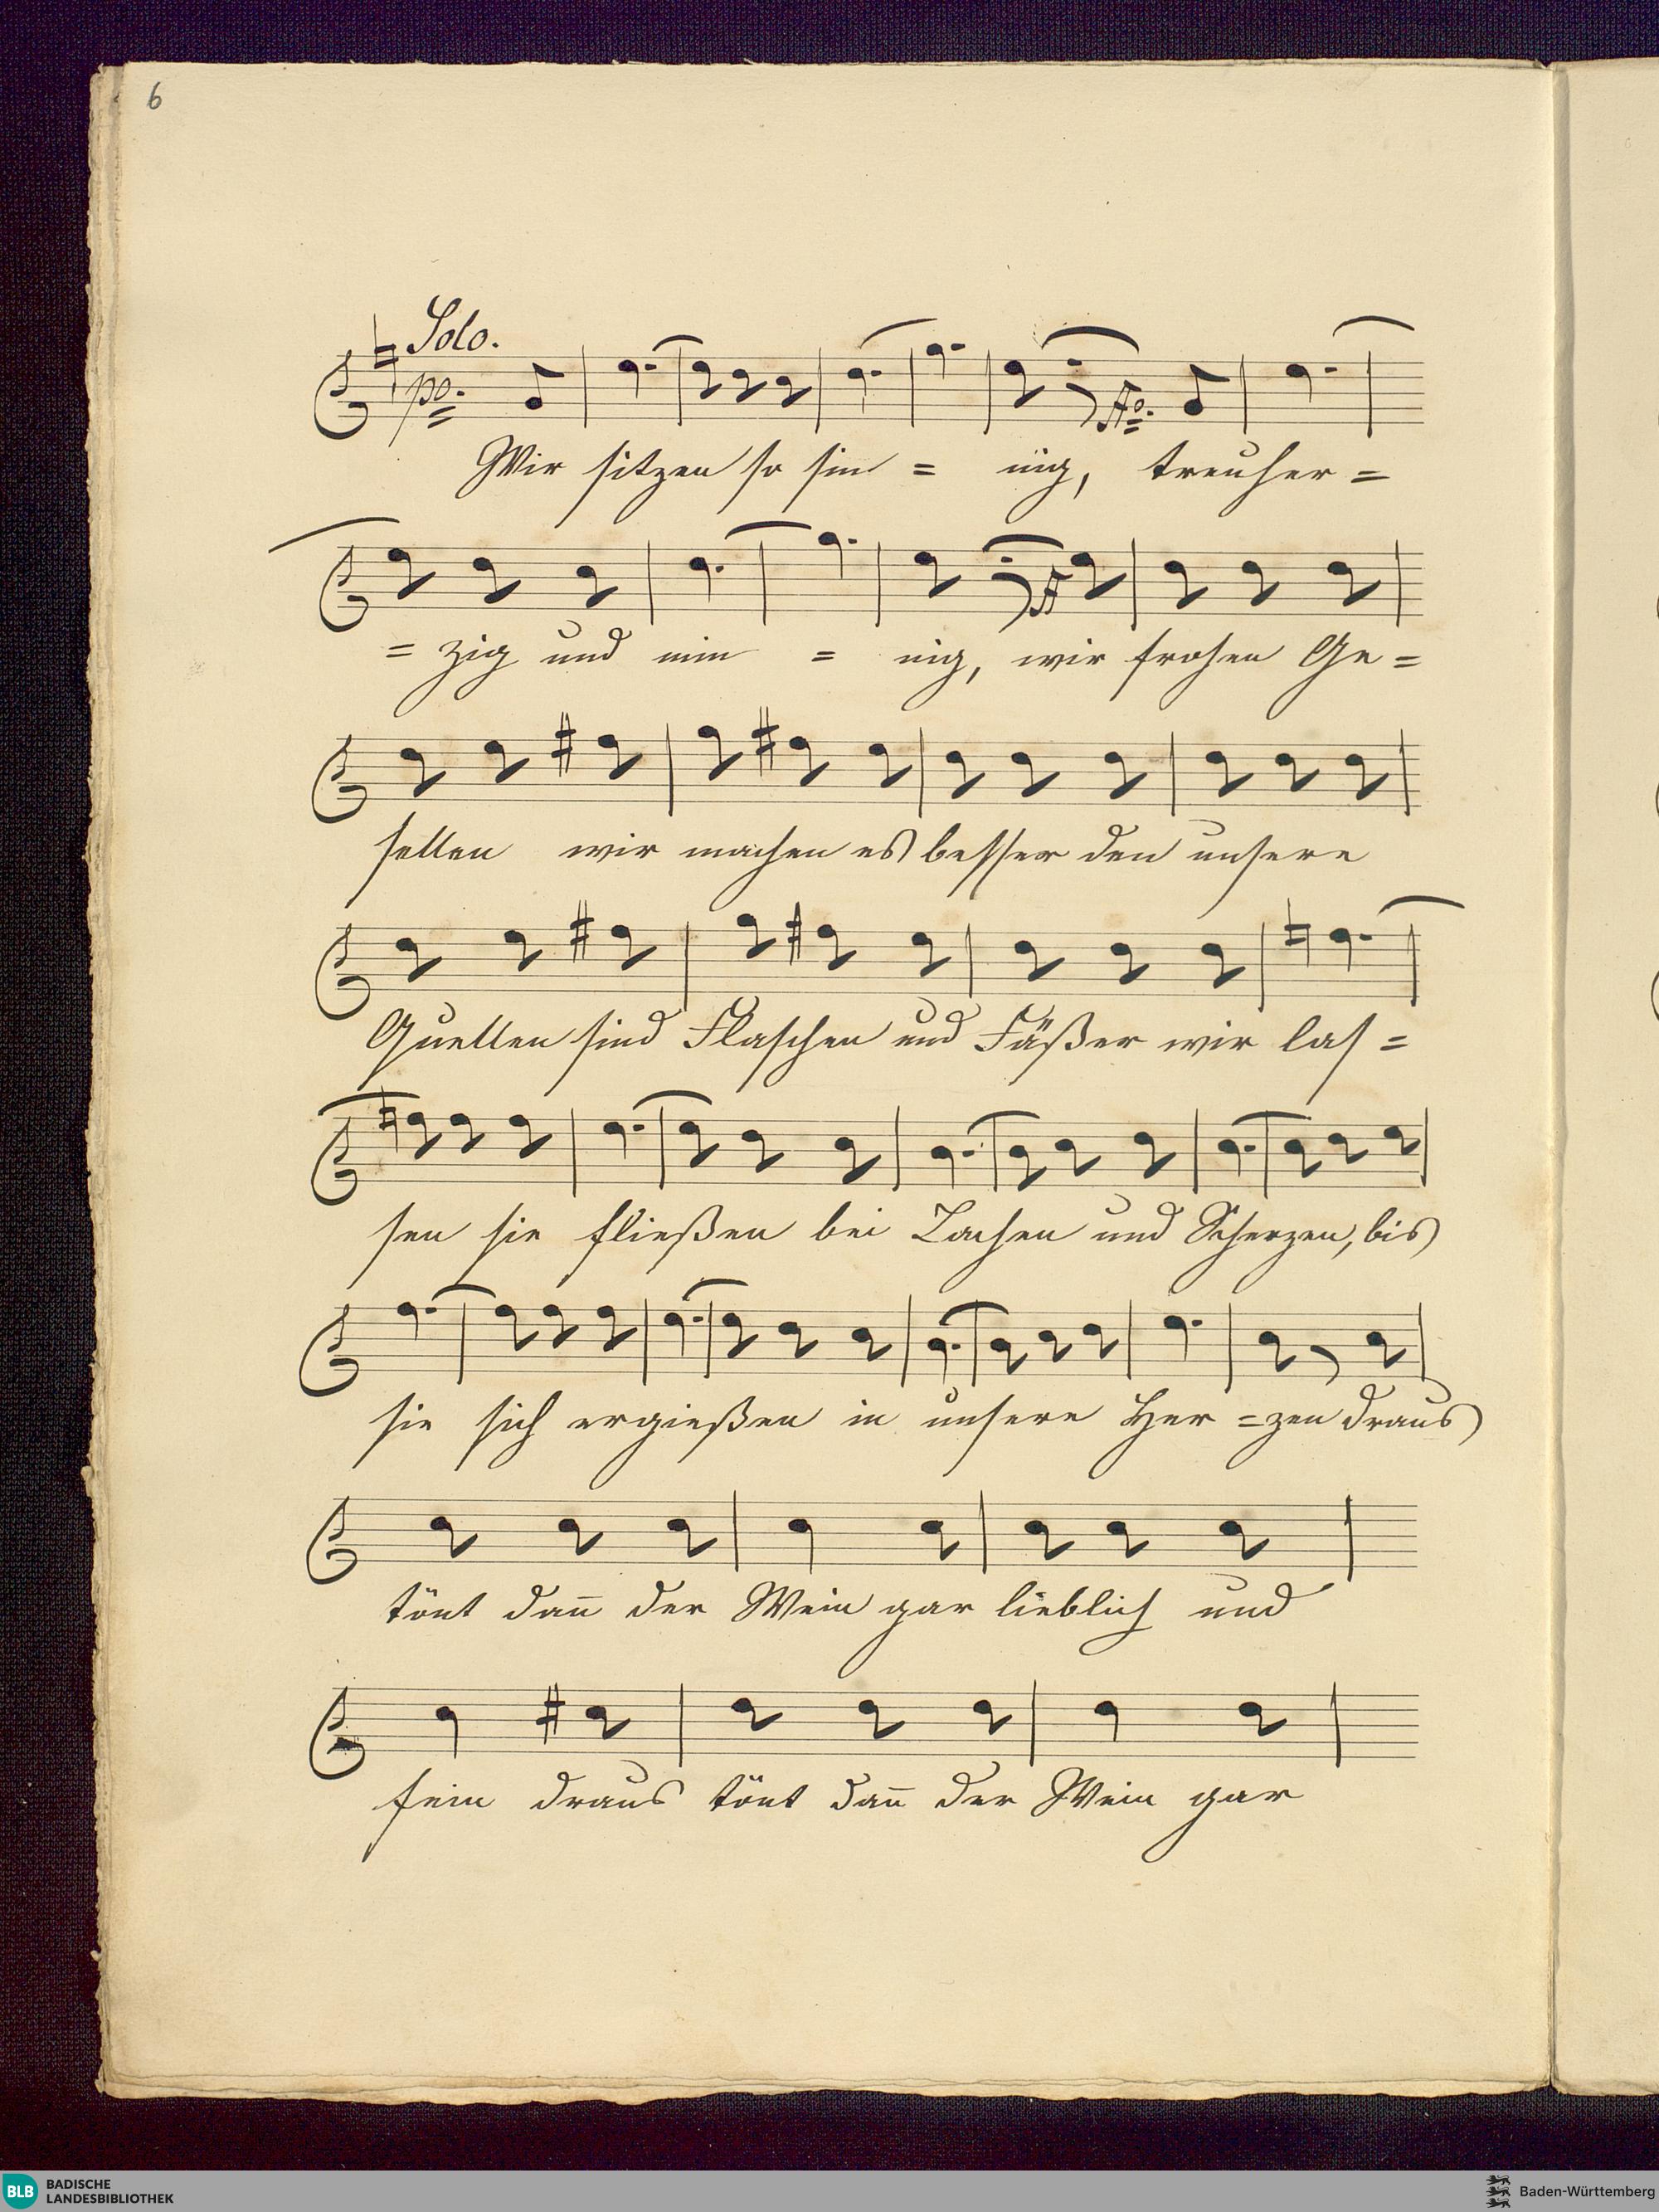 6
Solo.
po.
ffo.
Wir sitzen so sin = nig, treuher =
ff
= zig und min = nig, wir frohen Ge =
sellen wir machen es besser den unsere
Quellen sind Flaschen und Fäßer wir las =
sen sie fließen bei Lachen und Scherzen, bis
sie sich ergießen in unsere Her = zen draus
tönt dan̄ der Wein gar lieblich und
fein draus tönt dan̄ der Wein gar
BLB BADISCHE
LANDESBIBLIOTHEK
Baden-Württemberg